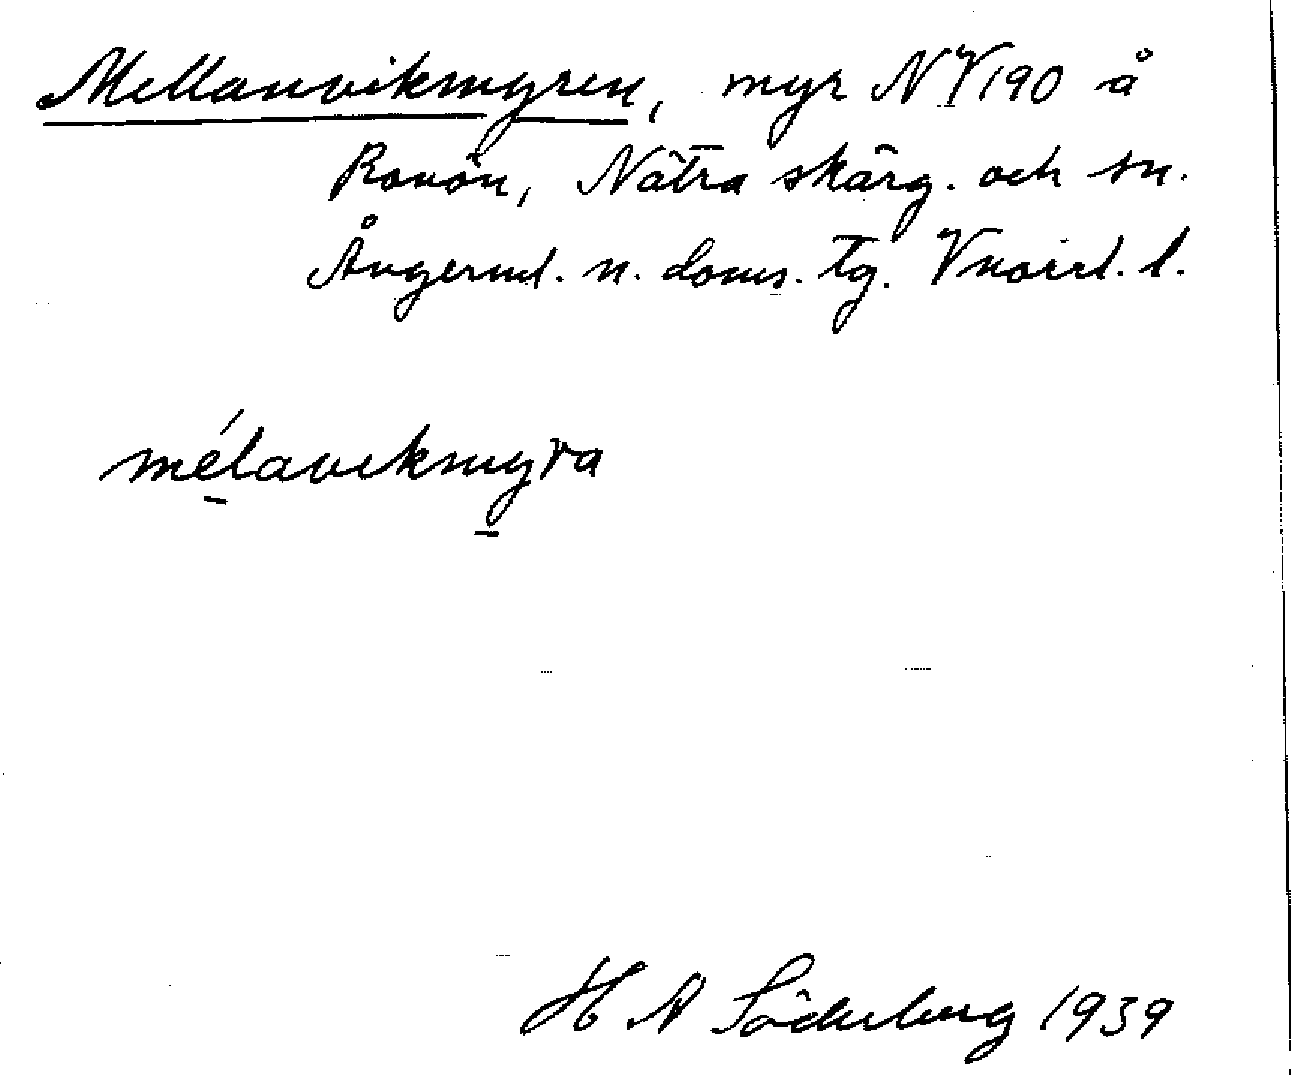 Mellanvikmyren, myr NV 190 å
Rovön, Nätra skärg. och sn.
Ångerml. n. doms. tg. Vnorrl. l.
mélavikmyra
H A Söderberg 1939